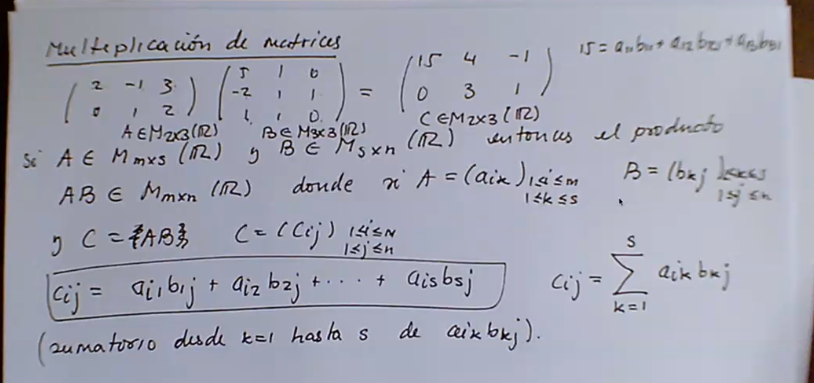 Multiplicación de matrices
15 = a11b11 + a12b21 + a13b31
( 2 -1 3 ) ( 5 1 0 ) = ( 15 4 -1 )
( 0 1 2 ) ( -2 1 1 ) ( 0 3 1 )
( 1 1 0 )
A ∈ M2x3(ℝ) B ∈ M3x3(ℝ) C ∈ M2x3(ℝ)
Si A ∈ Mmxs (ℝ) y B ∈ Msxn (ℝ) entonces el producto
AB ∈ Mmxn (ℝ) donde si A = (aik) 1≤i≤m 1≤k≤s B = (bkj) 1≤k≤s 1≤j≤n
y C = {AB} C = (Cij) 1≤i≤N 1≤j≤n
Cij = ai1b1j + ai2b2j + ··· + aisbsj
Cij = ∑ k=1 s aik bkj
(sumatorio desde k=1 hasta s de aik bkj).